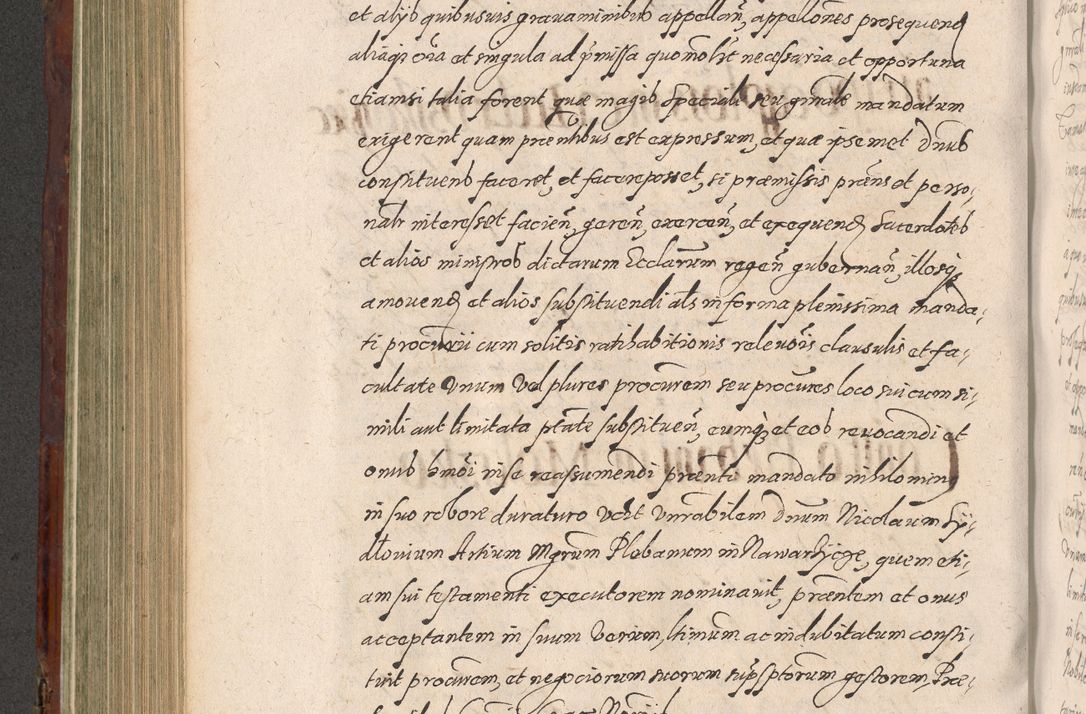 et alijs quibusuis grauaminibus appellan̄, appellōnes prosequend
aliaq; oīa et singula ad p̄missa quomōlt necessaria et opportuna
etiamsi talia forent quæ magis speciale seu gnāle mandatum
exigerent quam præntibus est expressum, et quæ ipsemet Dnūs
constituens faceret, et facere posset, si præmissis præns et perso-
nalr interesset facien̄, geren̄, exercen̄, et exequend sacerdotes
et alios ministros dictarum Ecclārum regen̄ gubernan̄, illosq
amouend et alios substituendi als in forma plenissima manda-
ti procurii cum solitis ratihabitionis releuōis clausulis et fa-
cultate Vnum Vel plures procurem seu procures loco sui cum si-
mili aut limitata ptāte substituen̄, eumq; et eos reuocandi et
onus hmōi in se reassumendi prænti mandato nihilomin9
in suo robore duraturo Vclt Vnrabilem Dnūm Nicolaum Sy-
dłouium Artium Mgrūm Plebanum in Nawarzycze, quem eti-
am sui testamenti executorem nominauit, præntem et onus
acceptantem in suum Verum, ltimum ac indubitatum consti-
tuit procurem, et negociorum suorum supsptorum gestorem, Præ-